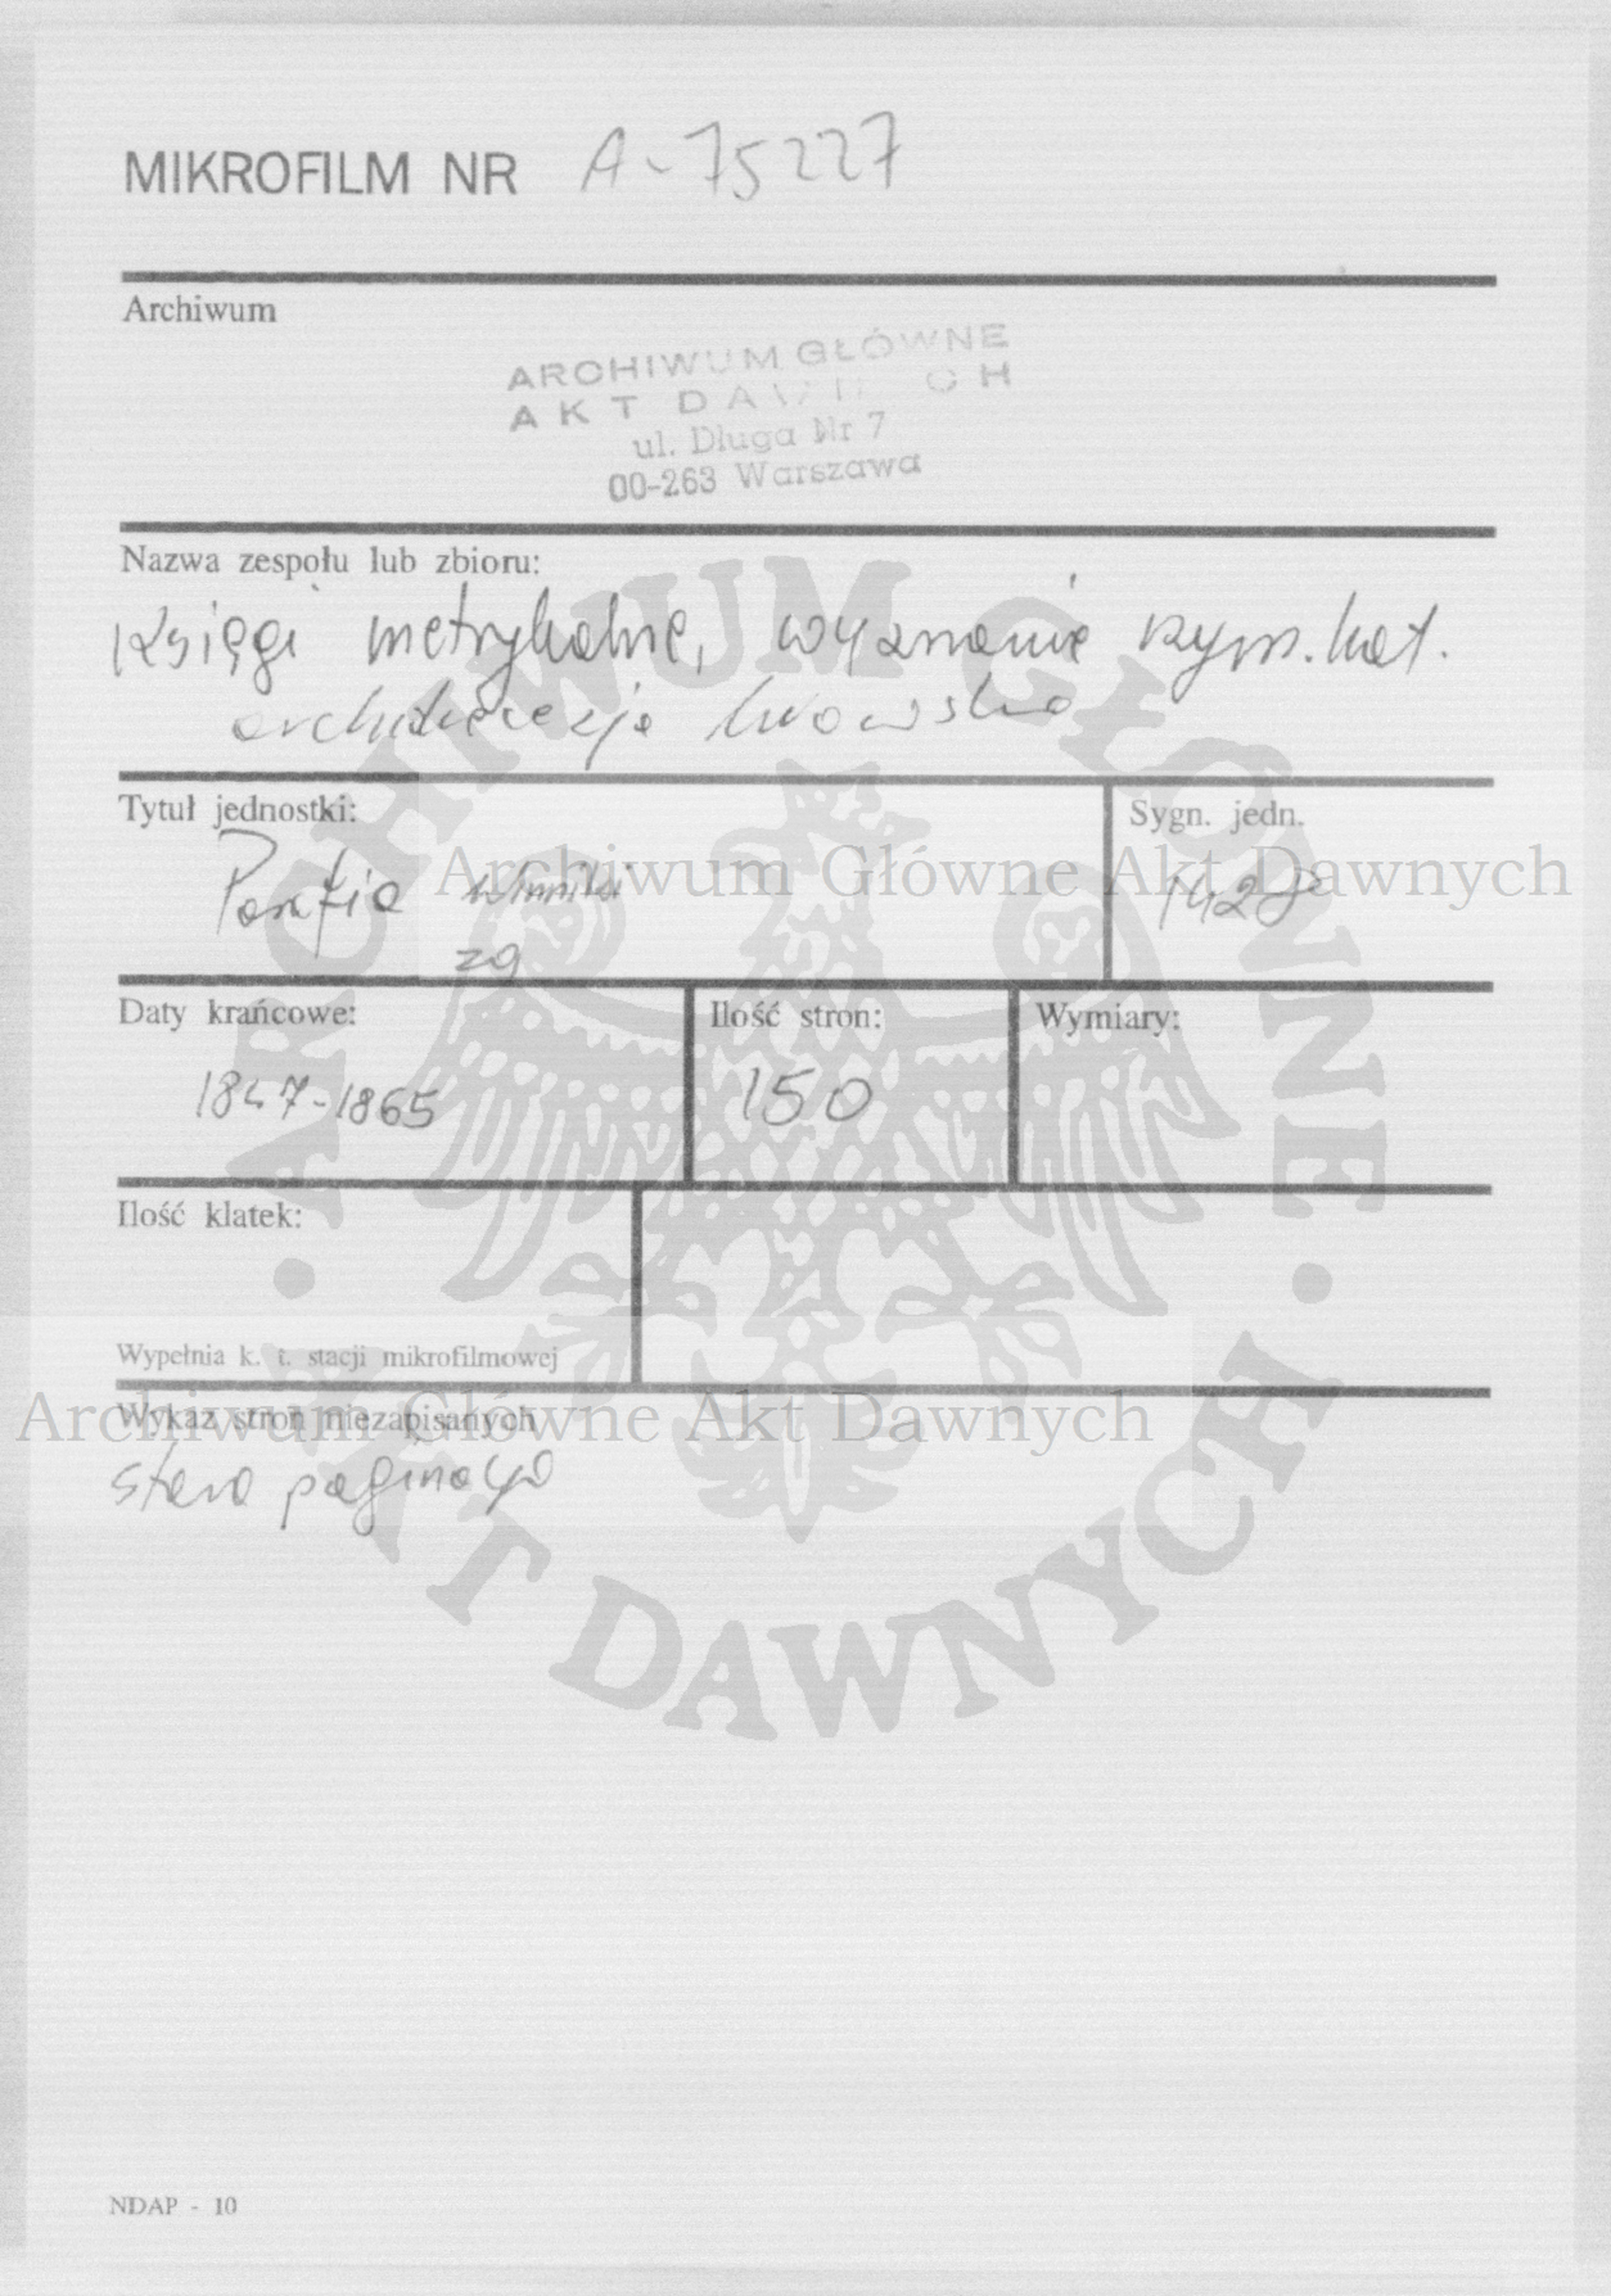 MIKROFILM NR A-75227
Archiwum
ARCHIWUM GŁÓWNE
AKT DAWNYCH
ul. Długa Nr 7
00-263 Warszawa
Nazwa zespołu lub zbioru:
Księgi metrykalne, wyznanie rzym. kat.
archidiecezja lwowska
Tytuł jednostki:
Sygn. jedn.
Parafia Winniki
1428
zg
Daty krańcowe:
Ilość stron:
Wymiary:
1847-1865
150
Ilość klatek:
Wypełnia k. t. stacji mikrofilmowej
Wykaz stron niezapisanych
stara paginacja
NDAP - 10
Archiwum Główne Akt Dawnych
Archiwum Główne Akt Dawnych
ARCHIWUM GŁÓWNE
AKT DAWNYCH